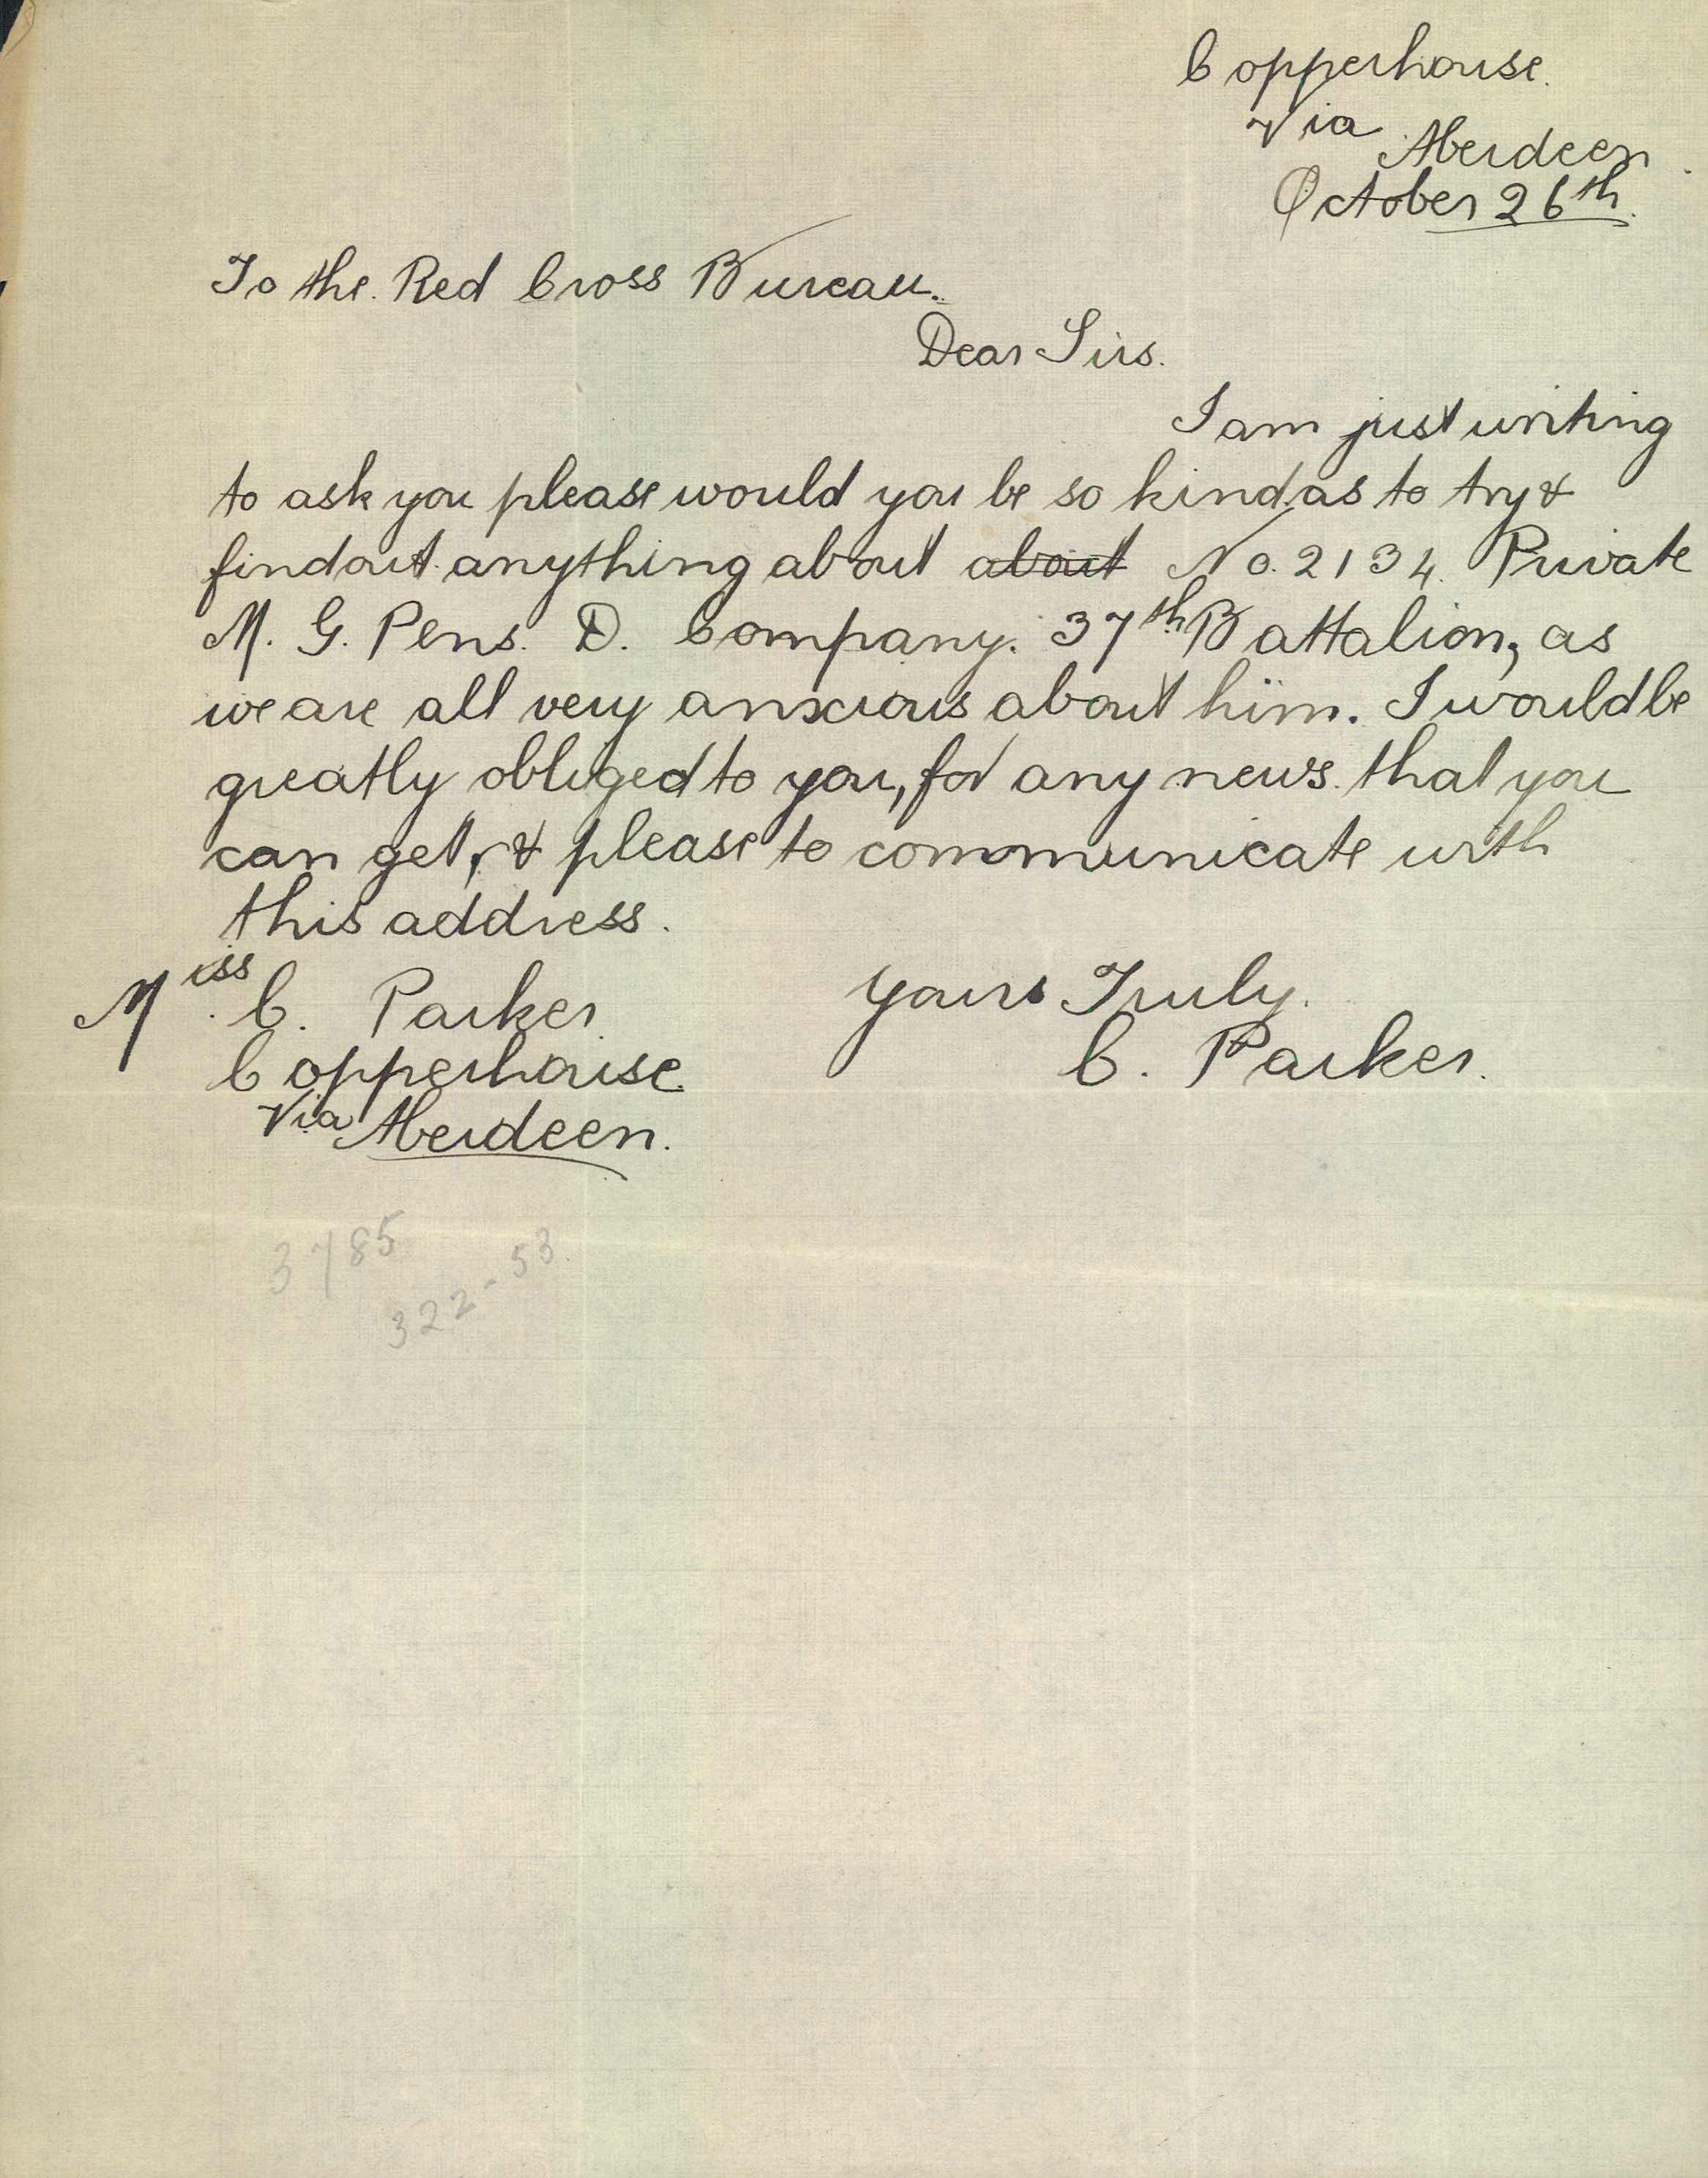 Copperhouse.
Via
Aberdeen.
October 26th.
To the. Red Cross Bureau.
Dear Sirs.
I am just writing
to ask you please would you be so kind as to try &
find out anything about about No. 2134. Private
M. G. Pens. D. Company. 37th Battalion, as
we are all very anxious about him. I would be
greatly obliged to you, for any news that you
can get, & please to communicate with
this address.
Miss C. Parker
Copperhouse.
Via Aberdeen.
Yours Truly.
C. Parker.
3785
322-53.